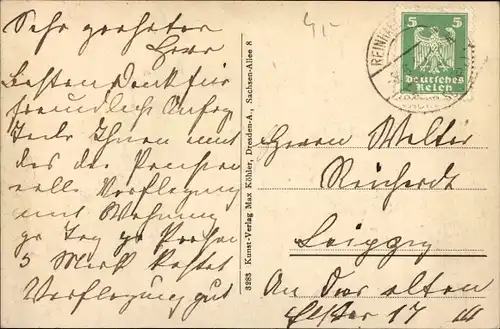 Sehr geehrter
Herr
Besten Dank für
freundliche Anfrage
Teile Ihnen mit
das der Pension
volle Verpflegung
mit Wohnung
pr Tag pr Person
5 Mark kostet
Verpflegung gut
4,-
5 5
Deutsches
Reich
3283 Kunst-Verlag Max Köhler, Dresden-A., Sachsen-Allee 8
Herrn Walter
Reichardt
Leipzig
An der alten
Elster 17 III